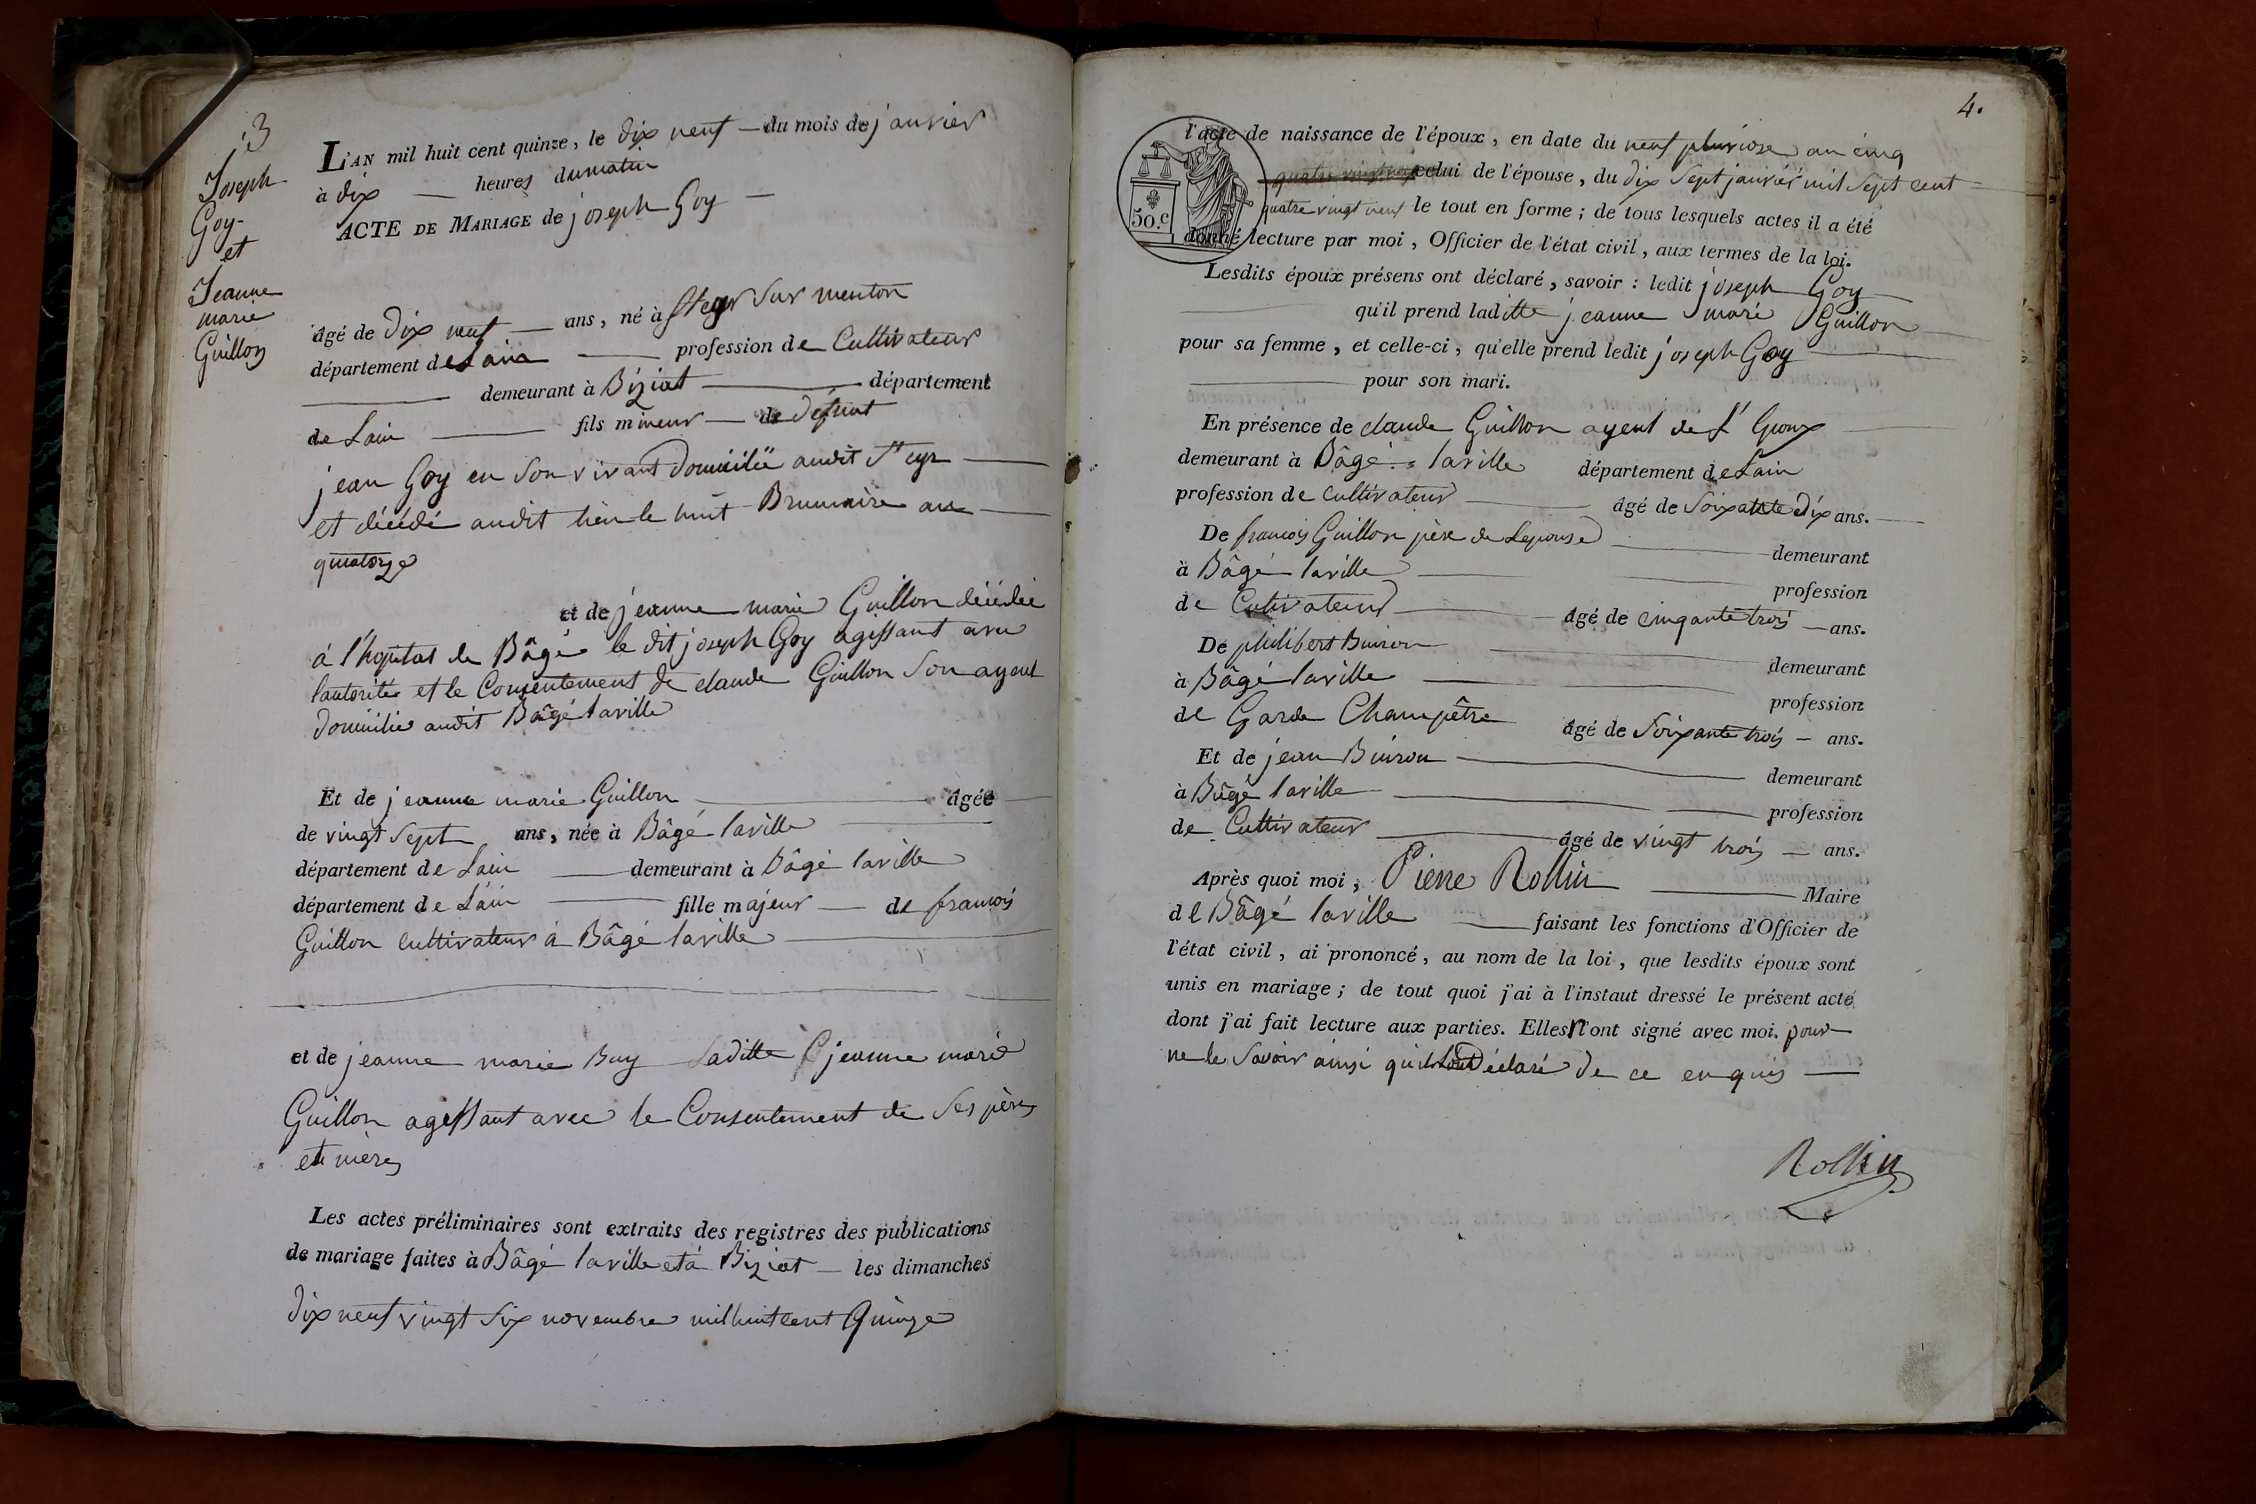 3
Joseph
Goy
et
Jeanne
marie
Guillon
L'AN mil huit cent quinze, le dix neuf du mois de janvier
à dix heures du matin
ACTE DE MARIAGE de joseph Goy
âgé de dix neuf ans, né à St cyr sur menton
département de Lain profession de Cultivateur
demeurant à Biziat département
de Lain fils mineur de defunt
jean Goy en son vivant domicilié audit St cyr
et décédé audit lieu le huit Brumaire an
quatorze
et de jeanne marie Guillon décédée
à l'hopital de Bâgé le dit joseph Goy agissant avec
lautorité et le Consentement de claude Guillon Son ayeul
domicilié audit Bâgé laville
Et de jeanne marie Guillon âgée
de vingt sept ans, née à Bâgé laville
département de Lain demeurant à Bâgé laville
département de Lain fille majeur de francois
Guillon cultivateur à Bâgé laville
et de jeanne marie Buy Laditte jeanne marie
Guillon agissant avec le Consentement de Ses père
et mère
Les actes préliminaires sont extraits des registres des publications
de mariage faites à Bâgé laville et à Biziat les dimanches
dix neuf vingt six novembre mil huit cent Quinze
4.
50.c
l'acte de naissance de l'époux, en date du neuf pluviose an cinq
celui de l'épouse, du dix Sept janvier mil Sept cent
quatre vingt neuf le tout en forme; de tous lesquels actes il a été
donné lecture par moi, Officier de l'état civil, aux termes de la loi.
Lesdits époux présens ont déclaré, savoir: ledit joseph Goy
qu'il prend laditte jeanne marie Guillon
pour sa femme, et celle-ci, qu'elle prend ledit joseph Goy
pour son mari.
En présence de claude Guillon ayeul de L'Epoux
demeurant à Bâgé laville département de Lain
profession de cultivateur âgé de Soixante dix ans.
De francois Guillon père de Lepouse demeurant
à Bâgé laville profession
de Cultivateur âgé de cinquante trois ans.
De philibert Buiron demeurant
à Bâgé laville profession
de Garde Champêtre âgé de Soixante trois ans.
Et de jean Buiron demeurant
à Bâgé laville profession
de Cultivateur âgé de vingt trois ans.
Après quoi moi, Pierre Rollin Maire
de Bâgé laville faisant les fonctions d'Officier de
l'état civil, ai prononcé, au nom de la loi, que lesdits époux sont
unis en mariage; de tout quoi j'ai à l'instaut dressé le présent acte
dont j'ai fait lecture aux parties. Elles n'ont signé avec moi. pour
ne le Savoir ainsi qu'ils ont Déclaré de ce enquis
Rollin